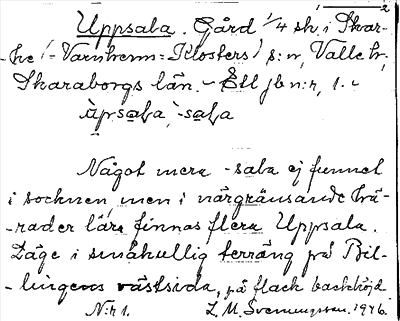 Uppsala. Gård 1/4 sk. i Skar-
-ke (-Varnhems-Klosters) s:n, Valle hr.
Skaraborgs län. - Ett jb n:r, 1. -
ùpsala, -sala
Något mera -sala ej funnet
i socknen men i närgränsande hä-
-rader lära finnas flera Uppsala.
Läge i småkullig terräng på Bil-
-lingens västsida, på flack backhöjd
N:r 1. L. M. Svenungsson. 1946.